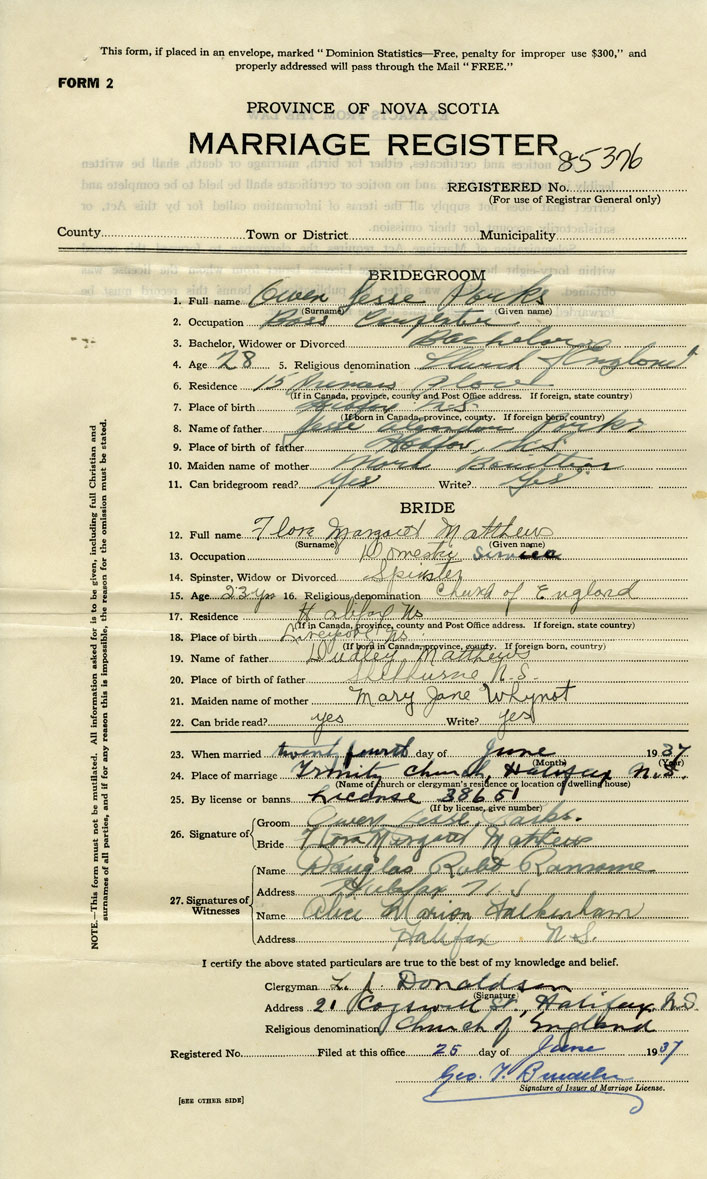 This form, if placed in an envelope, marked "Dominion Statistics—Free, penalty for improper use $300," and
properly addressed will pass through the Mail "FREE."
FORM 2
PROVINCE OF NOVA SCOTIA
MARRIAGE REGISTER
85376
REGISTERED No.
(For use of Registrar General only)
County Town or District Municipality
BRIDEGROOM
1. Full name Owen Jesse Parks
(Surname) (Given name)
2. Occupation Boss Carpenter
3. Bachelor, Widower or Divorced Bachelor
4. Age 28 5. Religious denomination Church of England
6. Residence 15 Place
(If in Canada, province, county and Post Office address. If foreign, state country)
7. Place of birth Halifax N.S.
(If born in Canada, province, county. If foreign born, country)
8. Name of father Jesse Parks
9. Place of birth of father Halifax N.S.
10. Maiden name of mother
11. Can bridegroom read? Yes Write? Yes
BRIDE
12. Full name Flora Margaret Matthews
(Surname) (Given name)
13. Occupation Domestic Service
14. Spinster, Widow or Divorced Spinster
15. Age 23 yrs 16. Religious denomination Church of England
17. Residence Halifax Ns
(If in Canada, province, county and Post Office address. If foreign, state country)
18. Place of birth Liverpool Ns.
(If born in Canada, province, county. If foreign born, country)
19. Name of father Dudley Matthews
20. Place of birth of father Shelburne N.S.
21. Maiden name of mother Mary Jane Whynot
22. Can bride read? yes Write? yes
23. When married twenty fourth day of June 1937
(Month) (Year)
24. Place of marriage Trinity Church, Halifax N.S.
(Name of church or clergyman's residence or location of dwelling house)
25. By license or banns License 38651
(If by license, give number)
26. Signature of Groom Owen Jesse Parks.
Bride Flora Margaret Mathews
27. Signatures of Witnesses Name Douglas Robt Ransome
Address Halifax N.S
Name Alice Marion Faulkenham
Address Halifax N.S.
I certify the above stated particulars are true to the best of my knowledge and belief.
Clergyman L. J. Donaldson
(Signature)
Address 21 Cogswell St., Halifax, N.S.
Religious denomination Church of England
Registered No. Filed at this office 25 day of June 1937
Geo. T.
Signature of Issuer of Marriage License.
[SEE OTHER SIDE]
NOTE.—This form must not be mutilated. All information asked for is to be given, including full Christian and
surnames of all parties, and if for any reason this is impossible, the reason for the omission must be stated.